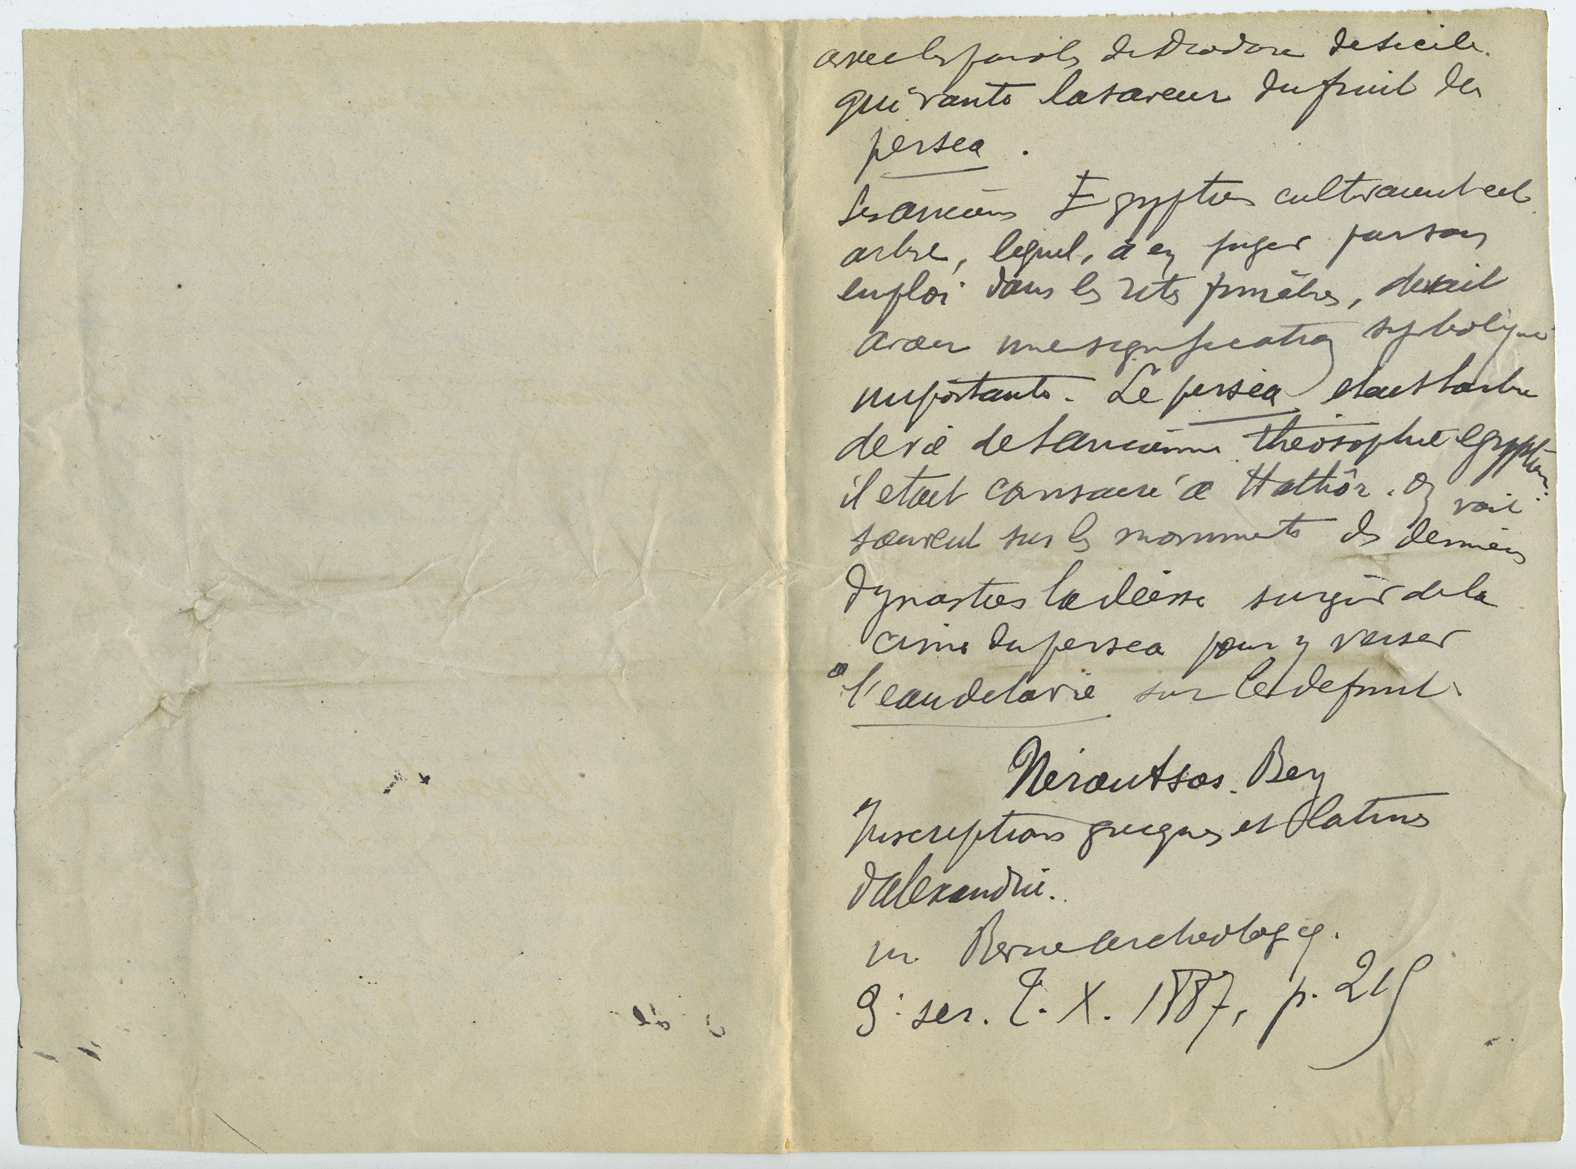 avec les paroles de Diodore de Sicile
qui vante la saveur du fruit du
persea.
Les anciens Egyptiens cultivaient cet
arbre, lequel, à en juger par son
emploi dans les rites funèbres, devait
avoir une signification symbolique
importante. Le persea etait l'arbre
de vie de l'ancienne théosophie egyptien.
il etait consacré à Hathôr. On voit
souvent sur les monuments des dernières
dynasties la déesse surgir de la
cime du persea pour y verser
l'eau de la vie sur le defunt.
Néroutsos. Bey
Inscriptions grecques et latines
d'Alexandrie.
in Revue archeologiq.
3e ser. T. X. 1887, p. 215